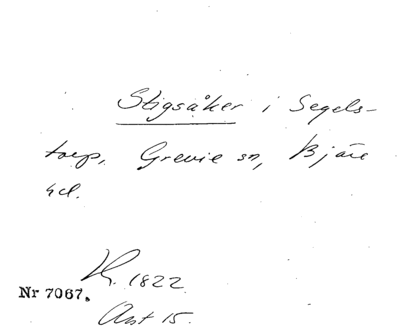 Stigsåker i Segels-
torp, Grevie sn, Bjäre
hd.
1822
Nr 7067.
Akt 15.